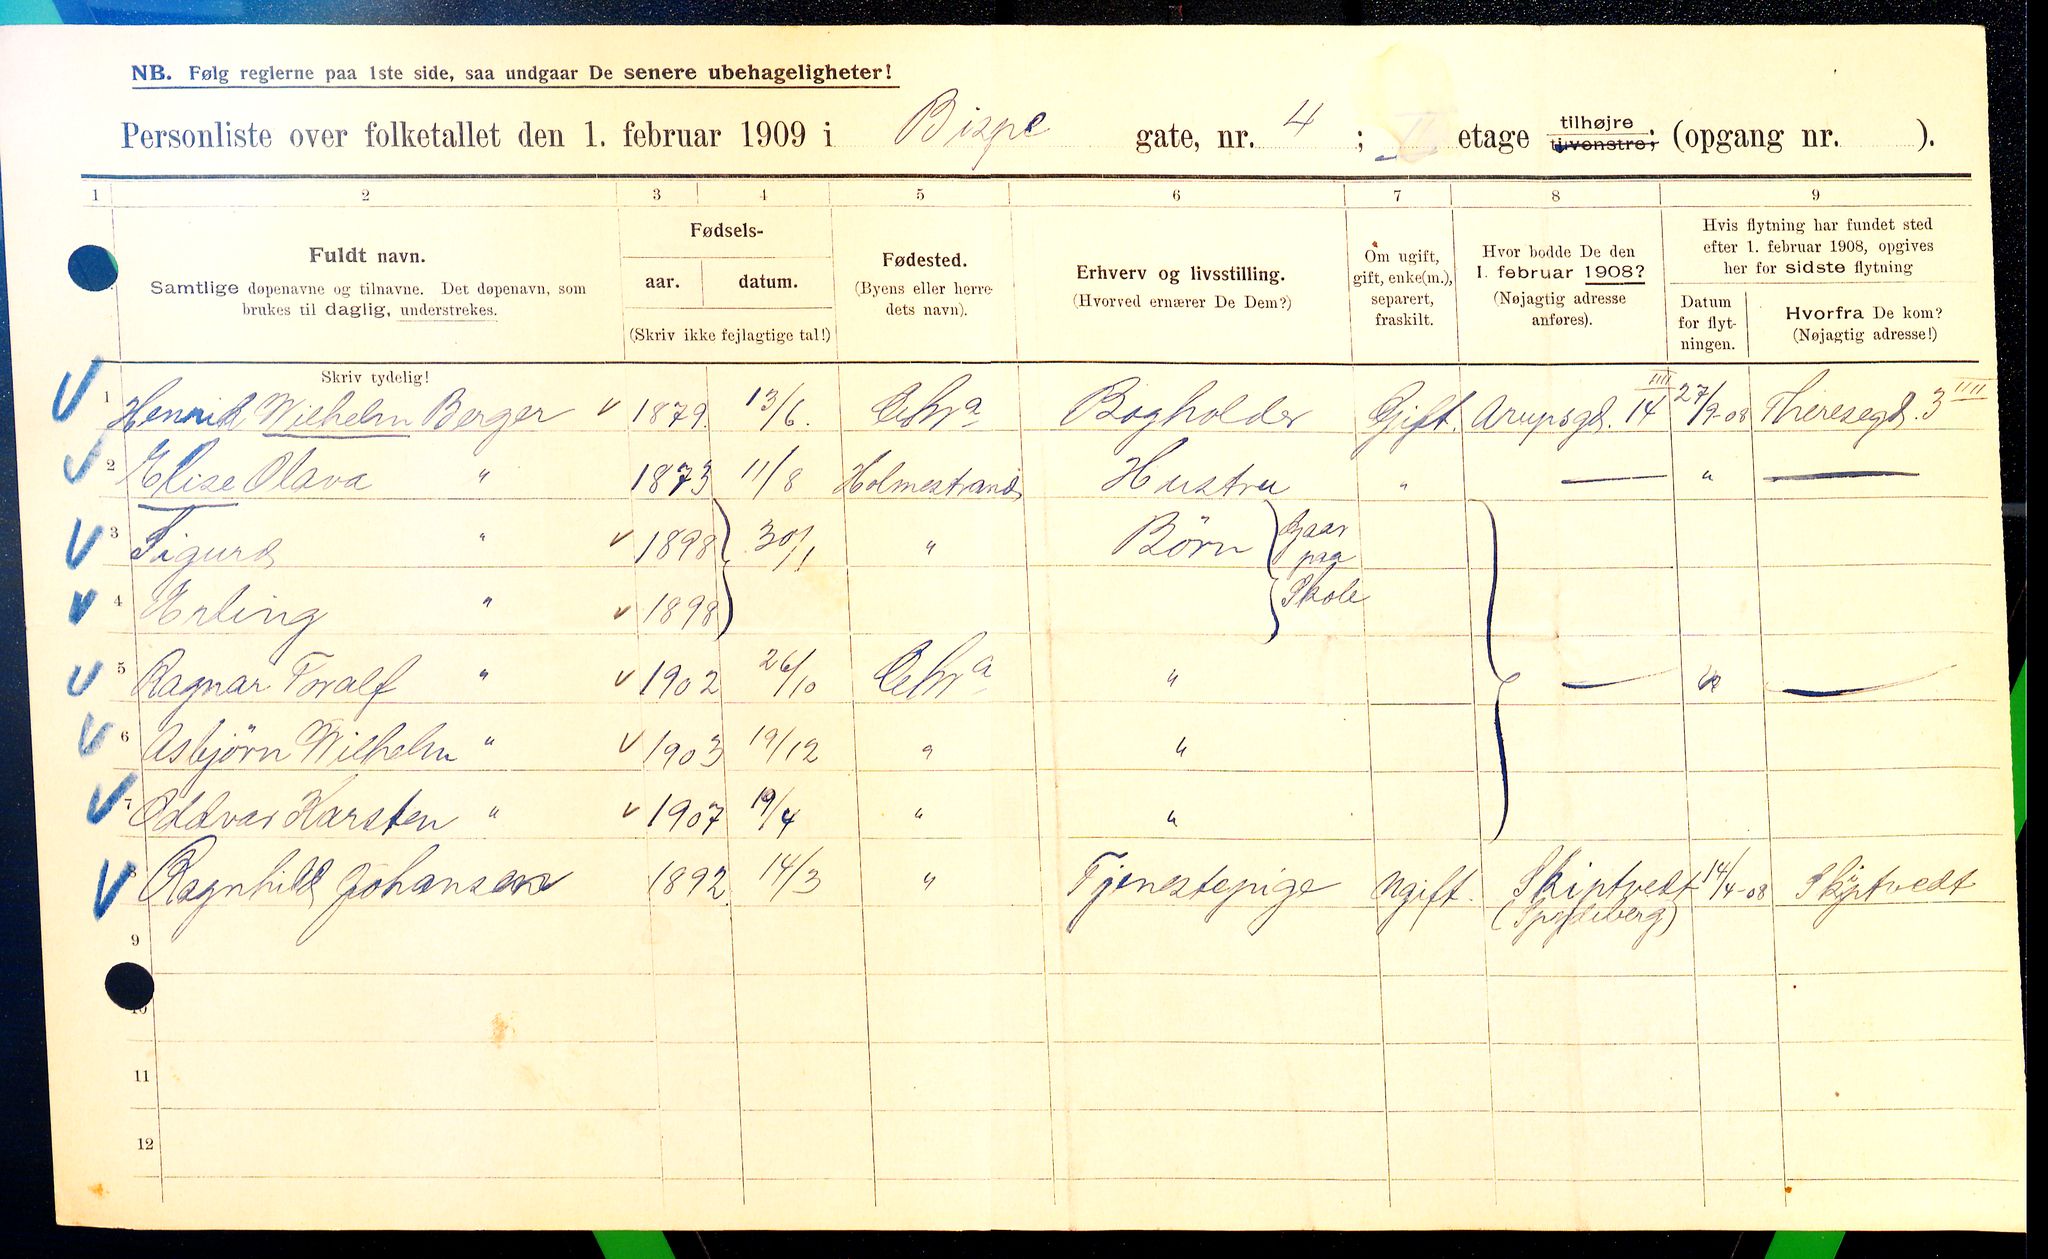 NB. Følg reglerne paa 1ste side, saa undgaar De senere ubehageligheter!
Personliste over folketallet den 1. februar 1909 i Bispe gate, nr. 4 ; II etage tilhøjre tilvenstre; (opgang nr. ).
1 2 3 4 5 6 7 8 9
Fuldt navn.
Samtlige døpenavne og tilnavne. Det døpenavn, som
brukes til daglig, understrekes.
Skriv tydelig!
Fødsels-
aar. datum.
(Skriv ikke fejlagtige tal!)
Fødested.
(Byens eller herre-
dets navn).
Erhverv og livsstilling.
(Hvorved ernærer De Dem?)
Om ugift,
gift, enke(m.),
separert,
fraskilt.
Hvor bodde De den
1. februar 1908?
(Nøjagtig adresse
anføres).
Hvis flytning har fundet sted
efter 1. februar 1908, opgives
her for sidste flytning
Datum
for flyt-
ningen.
Hvorfra De kom?
(Nøjagtig adresse!)
1 Henrik Wilhelm Berger v 1879. 13/6. Chra Bogholder Gift. Arupsgd. 14 IIII 27/9-08 Theresegd. 3 IIII
2 Elise Olava " 1873 11/8 Holmestrand Hustru " — " —
3 Sigurd " v 1898 } 30/11 " Børn { Gaar paa
4 Erling " v 1898 } { Skole
5 Ragnar Toralf " v 1902 26/10 Chra " — " —
6 Asbjörn Wilhelm " v 1903 19/12 " "
7 Oddvar Karsten " v 1907 19/4 " "
8 Ragnhild Johansen 1892 14/3 " Tjenestepige Ugift. Skiptvedt 14/4-08 Skiptvedt
(Spydeberg)
9
10
11
12